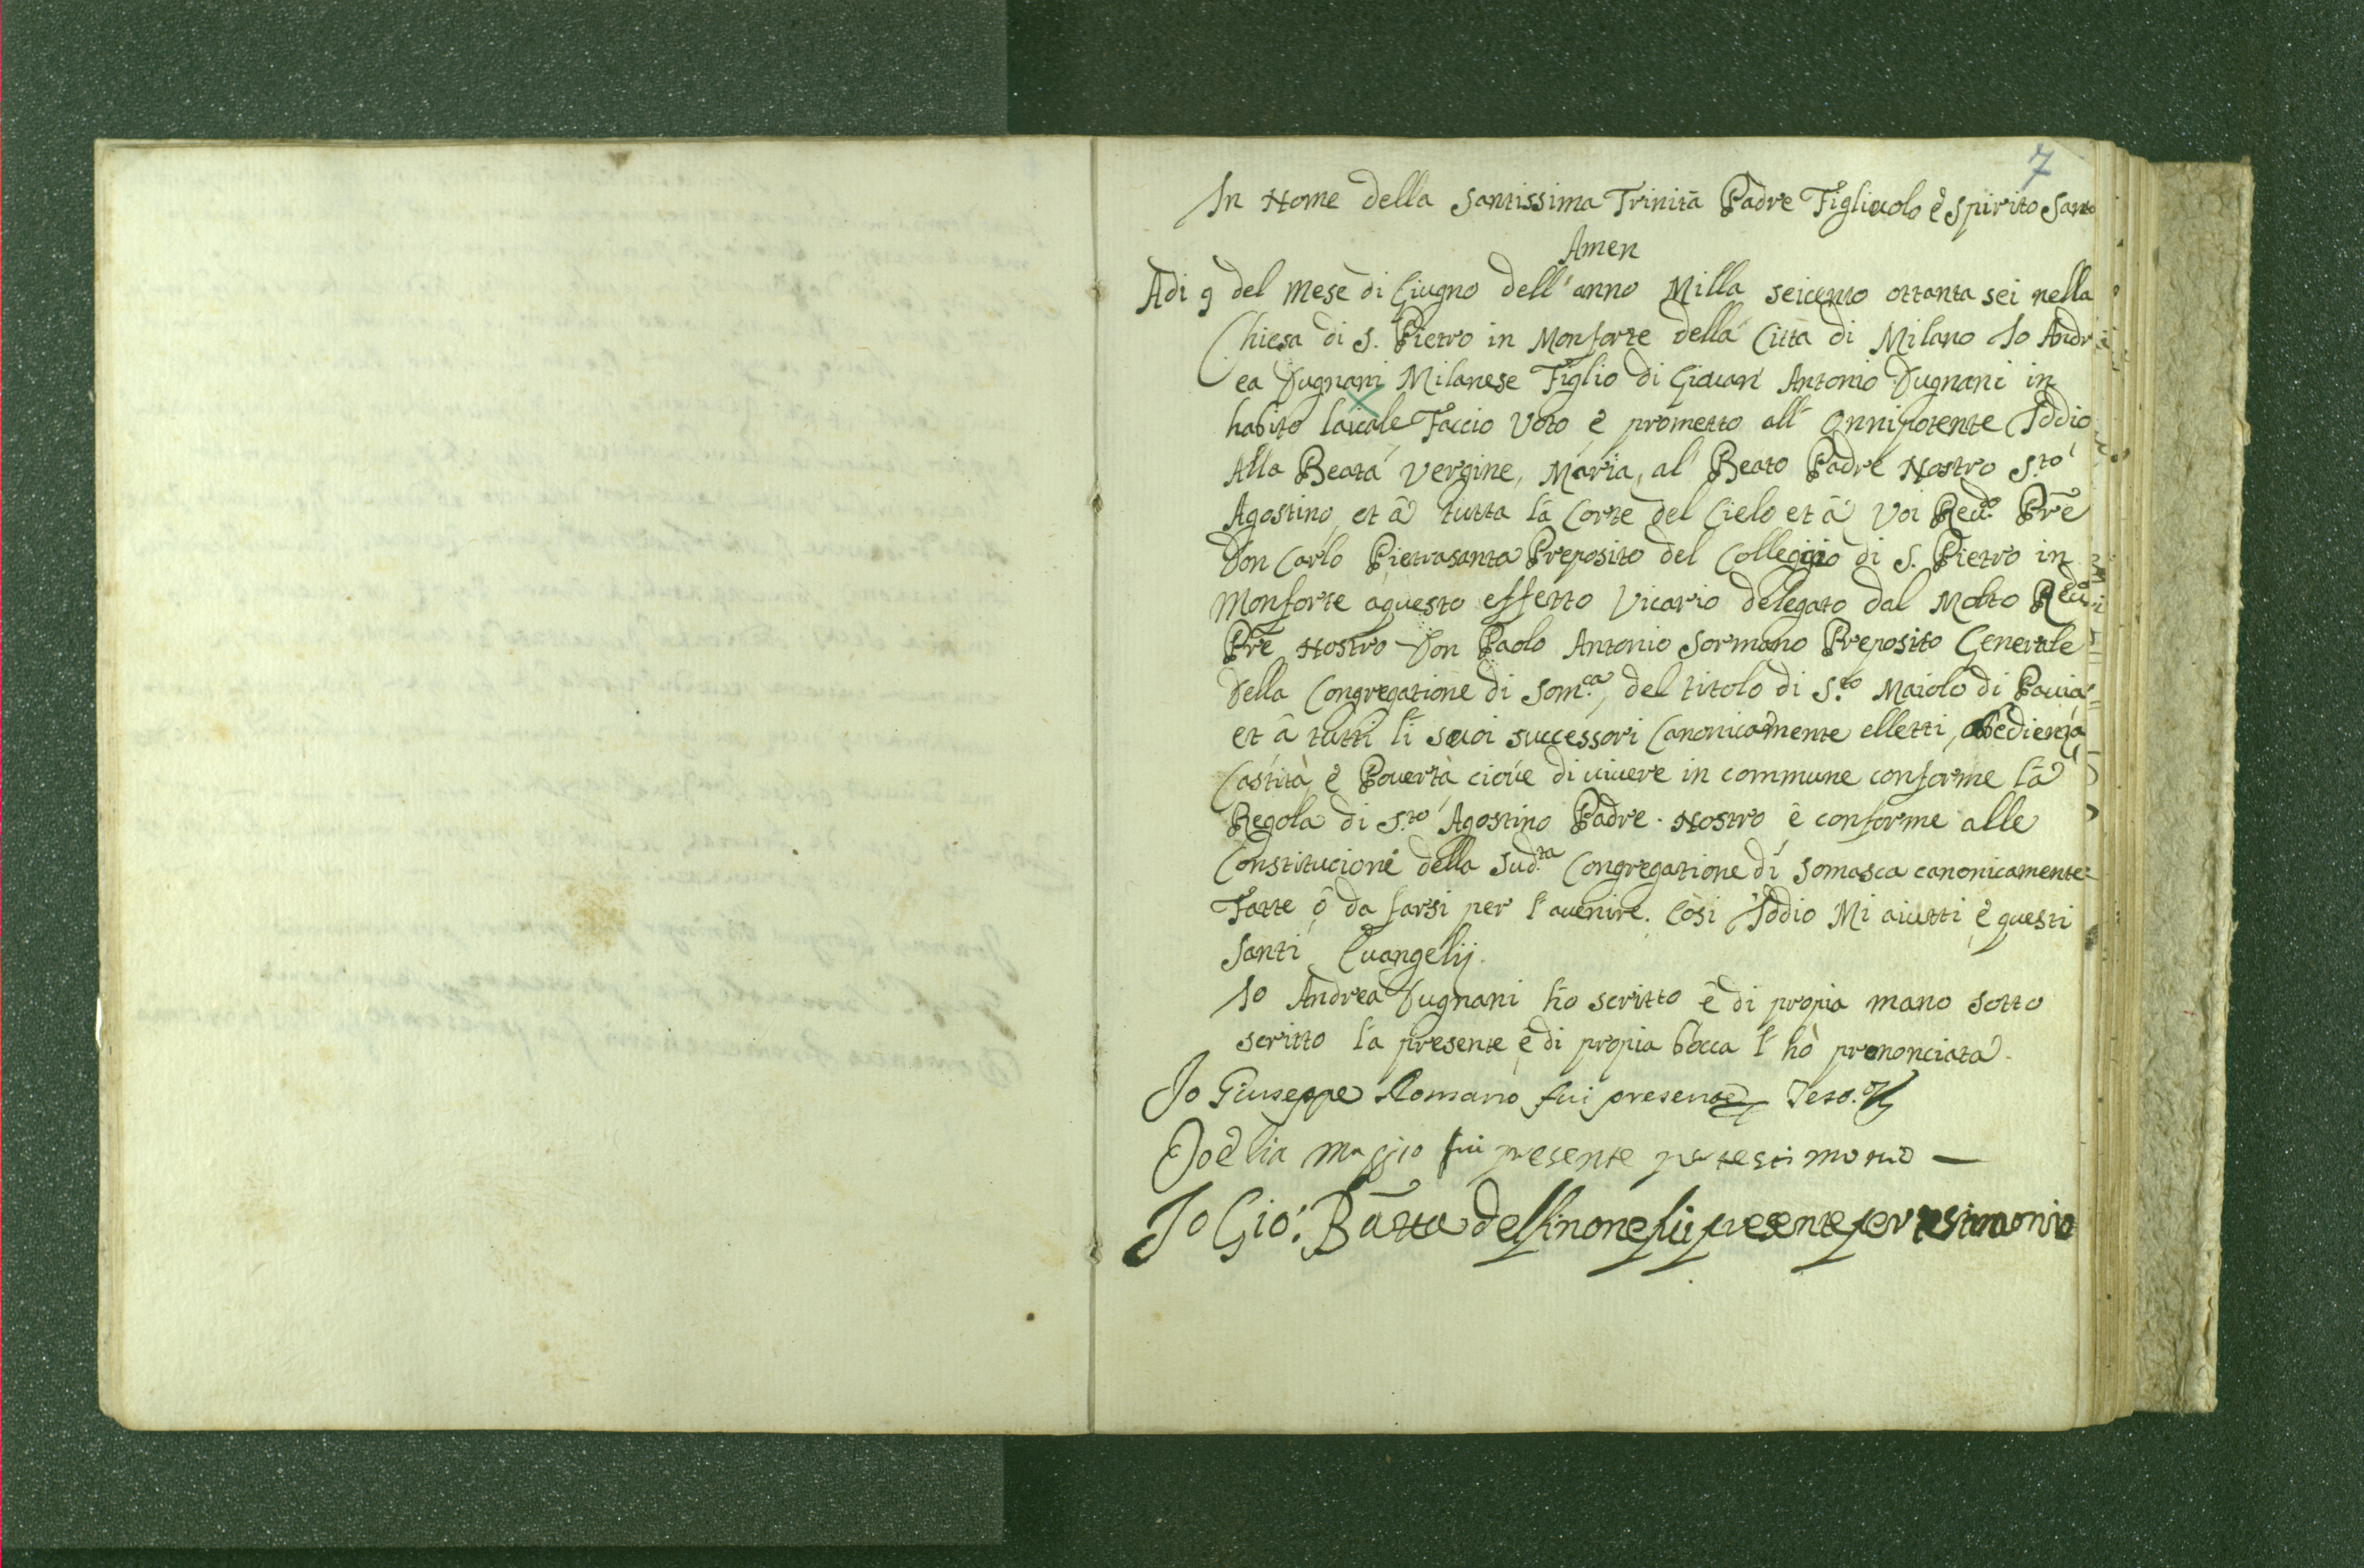 7
In Nome della Santissima Trinità Padre Figliuolo è Spirito Santo
Amen
Adi 9 del mese di Giugno dell'anno Milla seicento ottanta sei nella
Chiesa di S. Pietro in Monforte della Città di Milano Io Andr
ea Dugnani Milanese Figlio di Giouan Antonio Dugnani in
habito laicale Faccio Voto è prometto all' Onnipotente Iddio
Alla Beata Vergine, Maria, al Beato Padre Nostro S.to
Agostino, et â tutta la Corte del Cielo et â Voi Reu.do Prē
Don Carlo Pietrasanta Preposito del Colleggio di S. Pietro in
Monforte aquesto effetto Vicario delegato dal Molto Reu.do
Prē Nostro Don Paolo Antonio Sormano Preposito Generale
della Congregatione di Som.ca, del titolo di S.to Maiolo di Pauia
et â tutti li suoi successori Canonicamente elletti, obedienza
Castità, è Pouertà cioúe di uiuere in commune conforme la
Regola di S.to Agostino Padre Nostro è conforme alle
Constitucioni della Sud.ta Congregatione di Somasca canonicamente
Fatte ò da farsi per l'auenire. Così Iddio Mi aiutti è questi
Santi Euangelij.
Io Andrea Dugnani hò scritto è di propia mano sotto
scritto la presente è di propia bocca l'hò prononciata
Io Giuseppe Romano fui presente Teso.
Io elia maggio fui presente per testimonio
Io Gio: Batta delfinone fui presente per testimonio